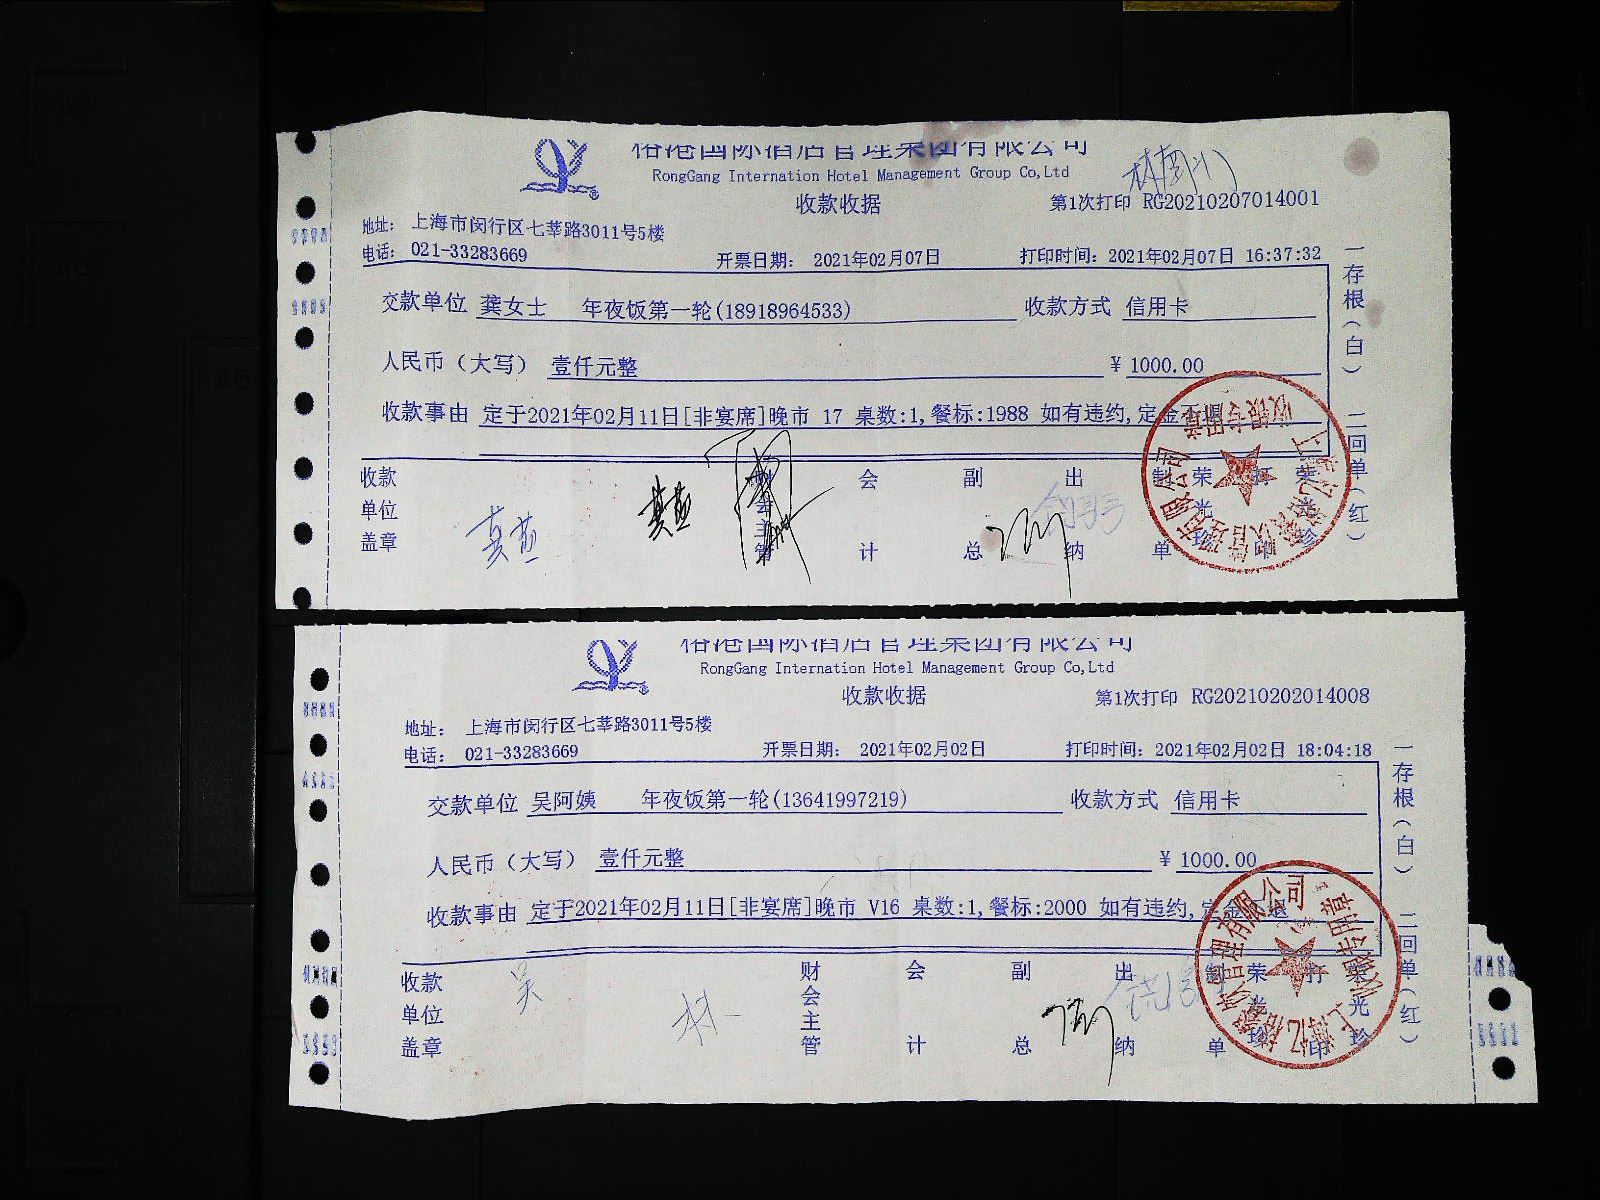 裕港国际酒店管理集团有限公司
RongGang Internation Hotel Management Group Co,Ltd
收款收据
第1次打印 RG20210207014001
地址: 上海市闵行区七莘路3011号5楼
电话: 021-33283669
开票日期: 2021年02月07日
打印时间: 2021年02月07日 16:37:32
交款单位 龚女士 年夜饭第一轮(18918964533) 收款方式 信用卡
人民币(大写) 壹仟元整 ¥ 1000.00
收款事由 定于2021年02月11日[非宴席]晚市 17 桌数:1,餐标:1988 如有违约,定金不退
收款单位盖章 财会主管 会计 副总 出纳 制单 荣光珍 打印 荣光珍
一存根(白) 二回单(红)
裕港国际酒店管理集团有限公司
RongGang Internation Hotel Management Group Co,Ltd
收款收据
第1次打印 RG20210202014008
地址: 上海市闵行区七莘路3011号5楼
电话: 021-33283669
开票日期: 2021年02月02日
打印时间: 2021年02月02日 18:04:18
交款单位 吴阿姨 年夜饭第一轮(13641997219) 收款方式 信用卡
人民币(大写) 壹仟元整 ¥ 1000.00
收款事由 定于2021年02月11日[非宴席]晚市 V16 桌数:1,餐标:2000 如有违约,定金不退
收款单位盖章 吴 林 财会主管 会计 副总 出纳 制单 荣光珍 打印 荣光珍
一存根(白) 二回单(红)